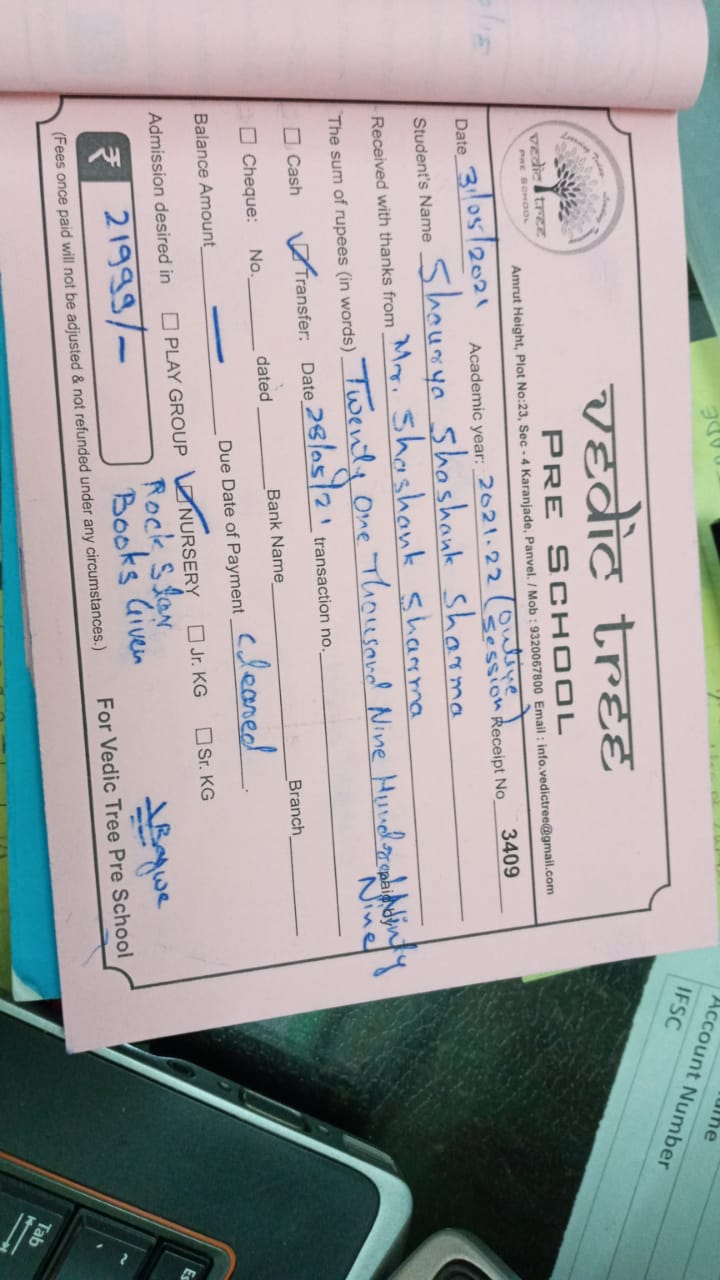 vedic tree
PRE SCHOOL
vedic tree
PRE SCHOOL
Amrut Height, Plot No:23, Sec - 4 Karanjade, Panvel. / Mob : 9320067800 Email : info.vedictree@gmail.com
Date 31/05/2021 Academic year: 2021-22 (Online Session) Receipt No 3409
Student's Name Shourya Shashank Sharma
Received with thanks from Mr. Shashank Sharma
The sum of rupees (in words) Twenty One Thousand Nine Hundred Ninty Nine paid by
Cash Transfer: Date 28/05/21 transaction no.
Cheque: No. dated Bank Name Branch
Balance Amount — Due Date of Payment cleared.
Admission desired in PLAY GROUP NURSERY Jr. KG Sr. KG
₹ 21999/- Rock Star
Books Given
For Vedic Tree Pre School
(Fees once paid will not be adjusted & not refunded under any circumstances.)
Account Number
IFSC
Tab